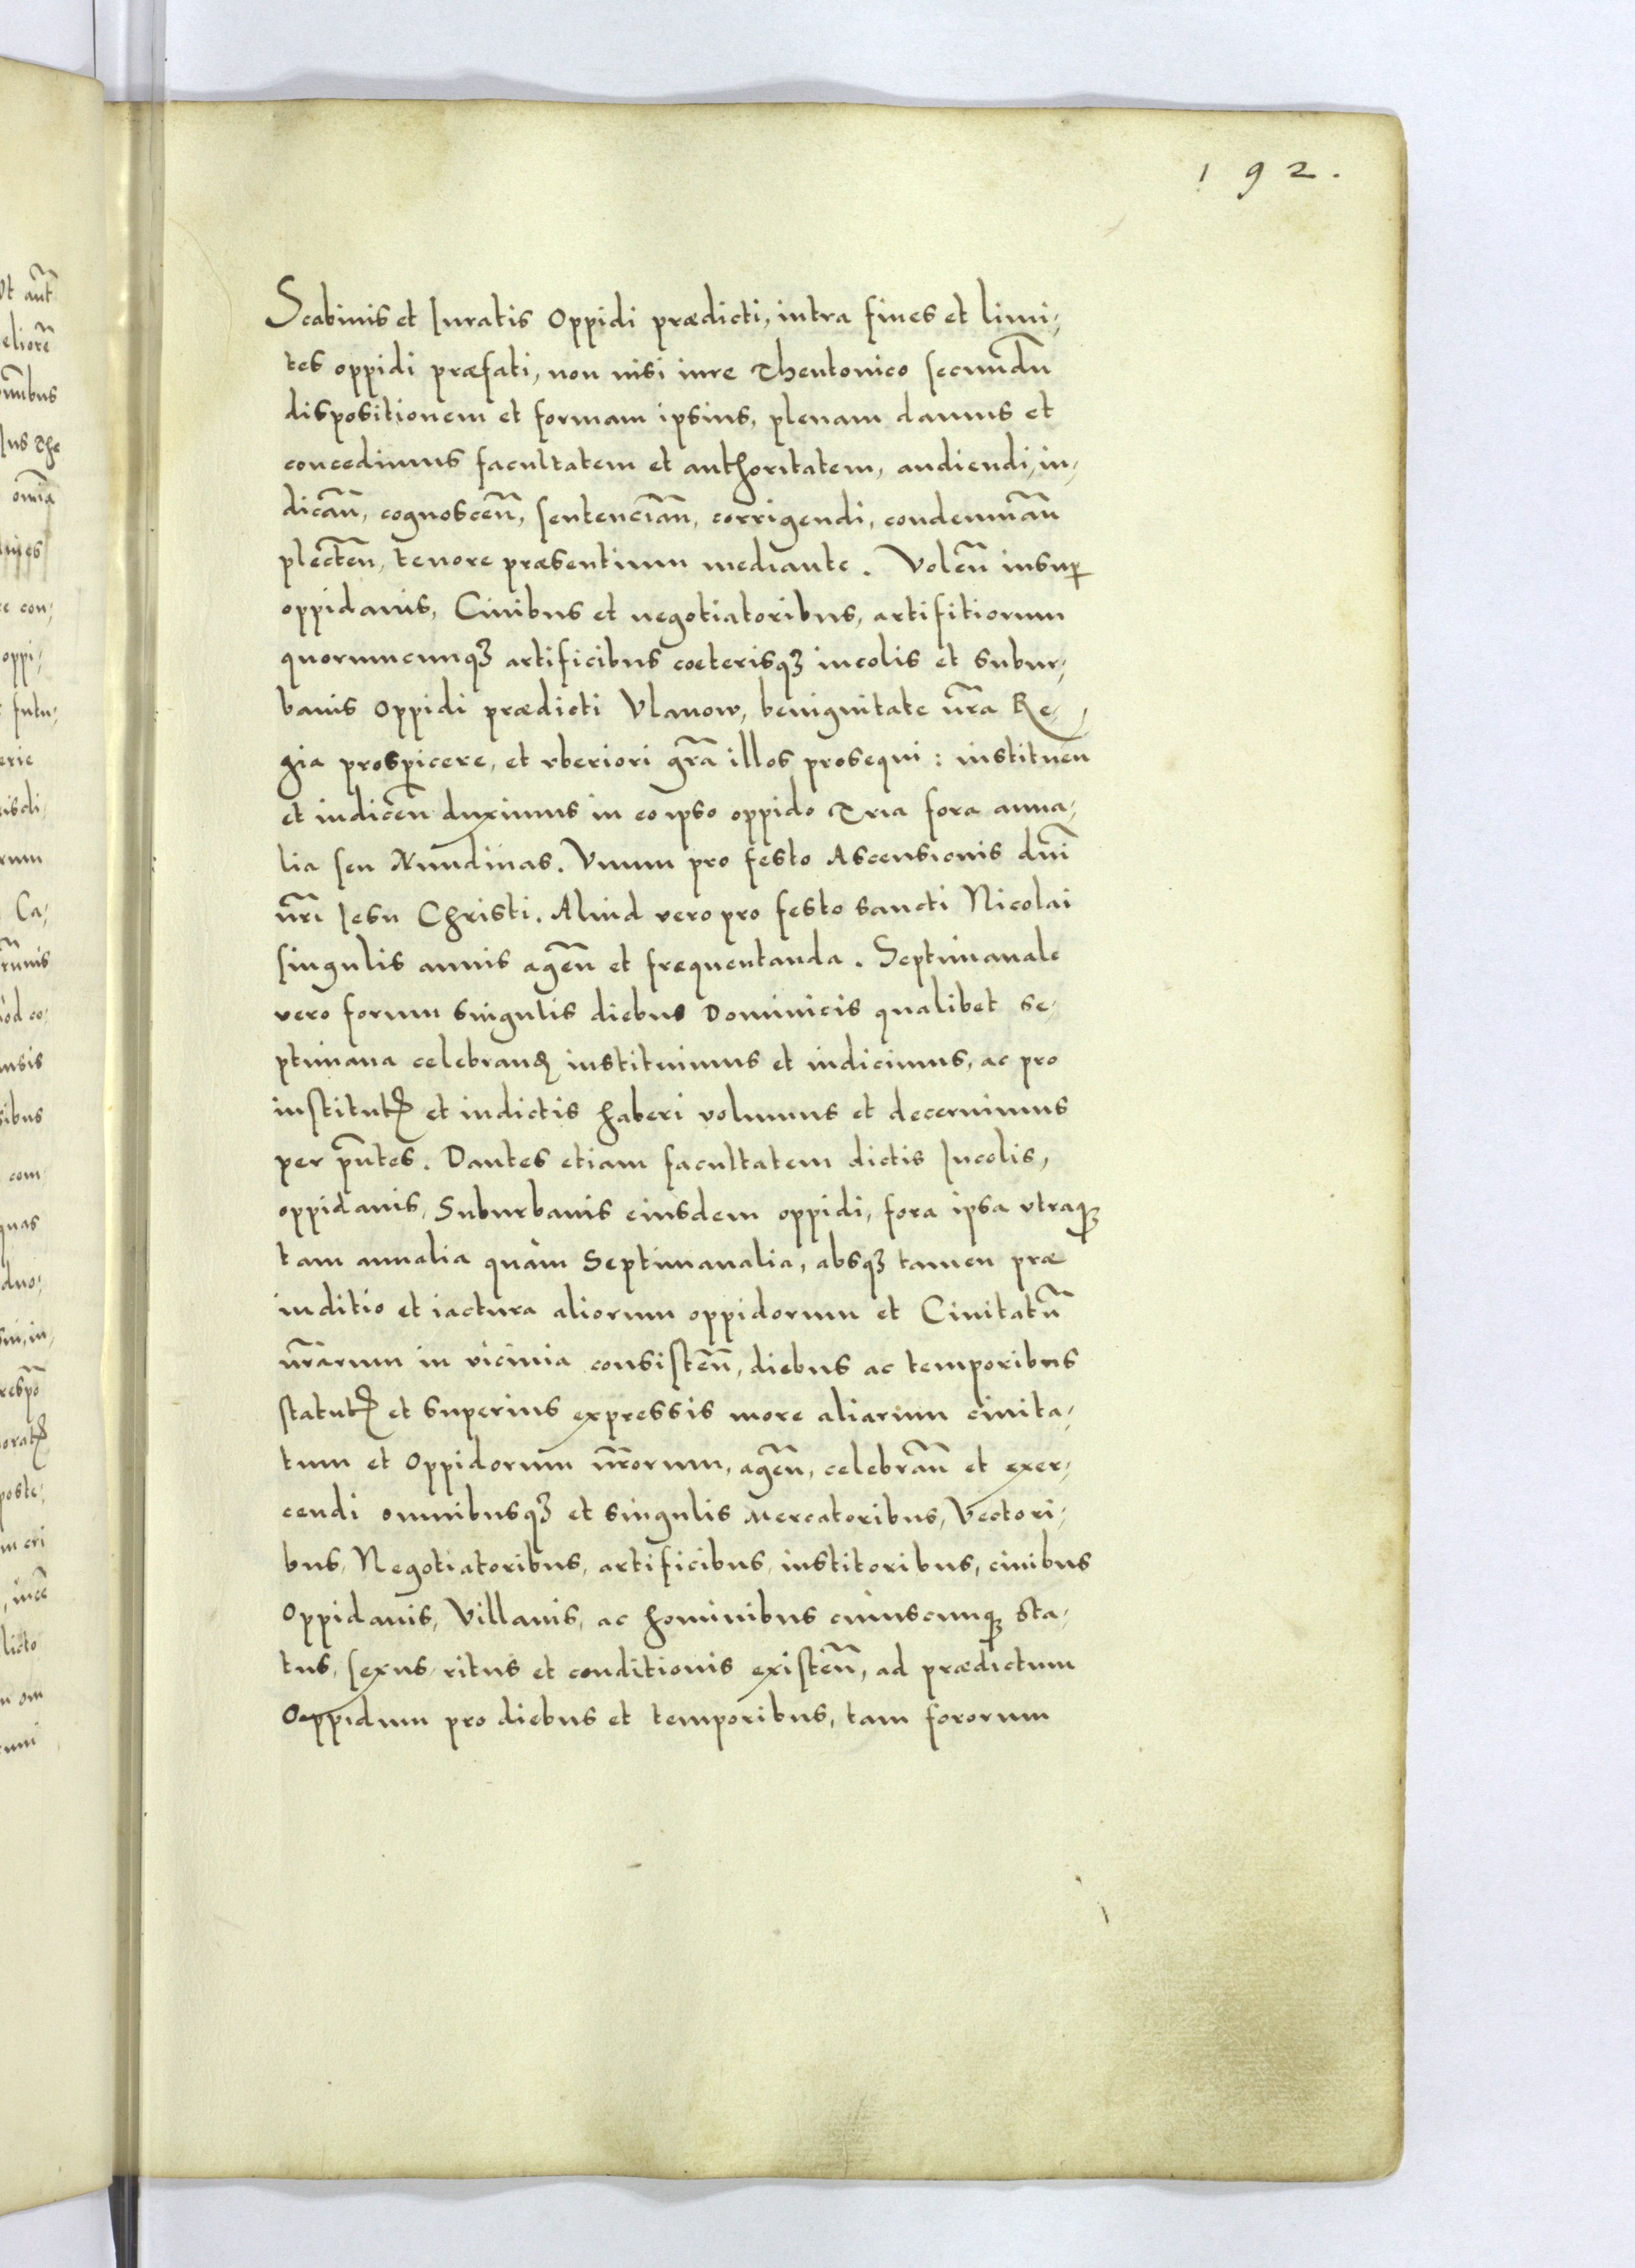 192.
Scabinis et Iuratis Oppidi prædicti, intra fines et limi,
tes oppidi præfati, non nisi iure Theutonico secundū
dispositionem et formam ipsius, plenam damus et
concedimus facultatem et authoritatem, audiendi, iu,
dicān̄, cognoscen̄, sentencian̄, corrigendi, condemnan̄
plecten̄, tenore præsentium mediante. Volen̄ insup̱
oppidanis, Ciuibus et negotiatoribus, artifitiorum
quorumcunqȝ artificibus cœterisqȝ incolis et subur,
banis Oppidi prædicti Vlanow, benignitate nr̄a Re,
gia prospicere, et vberiori gr̄a illos prosequi: instituen̄
et indicen̄ duximus in eo ipso oppido Tria fora anna,
lia seu Nundinas. Vnum pro festo Ascensionis dn̄i
nr̄i Iesu Christi. Aliud vero pro festo sancti Nicolai
singulis annis agen̄ et frequentanda. Septimanale
vero forum singulis diebus Dominicis qualibet se,
ptimana celebranꝝ instituimus et indicimus, ac pro
institutꝭ et indictis haberi volumus et decernimus
per pn̄tes. Dantes etiam facultatem dictis Incolis,
oppidanis, Suburbanis eiusdem oppidi, fora ipsa vtraqȝ
tam annalia quàm Septimanalia, absqȝ tamen præ
iuditio et iactura aliorum oppidorum et Ciuitatū
nr̄arum in vicinia consisten̄, diebus ac temporibus
statutꝭ et superius expressis more aliarum ciuita,
tum et Oppidorum nr̄orum, agen̄, celebran̄ et exer,
cendi omnibusqȝ et singulis Mercatoribus, Vectori,
bus, Negotiatoribus, artificibus, institoribus, ciuibus
Oppidanis, Villanis, ac hominibus cuiuscunqȝ sta,
tus, sexus, ritus et conditionis existen̄, ad prædictum
Oppidum pro diebus et temporibus, tam fororum